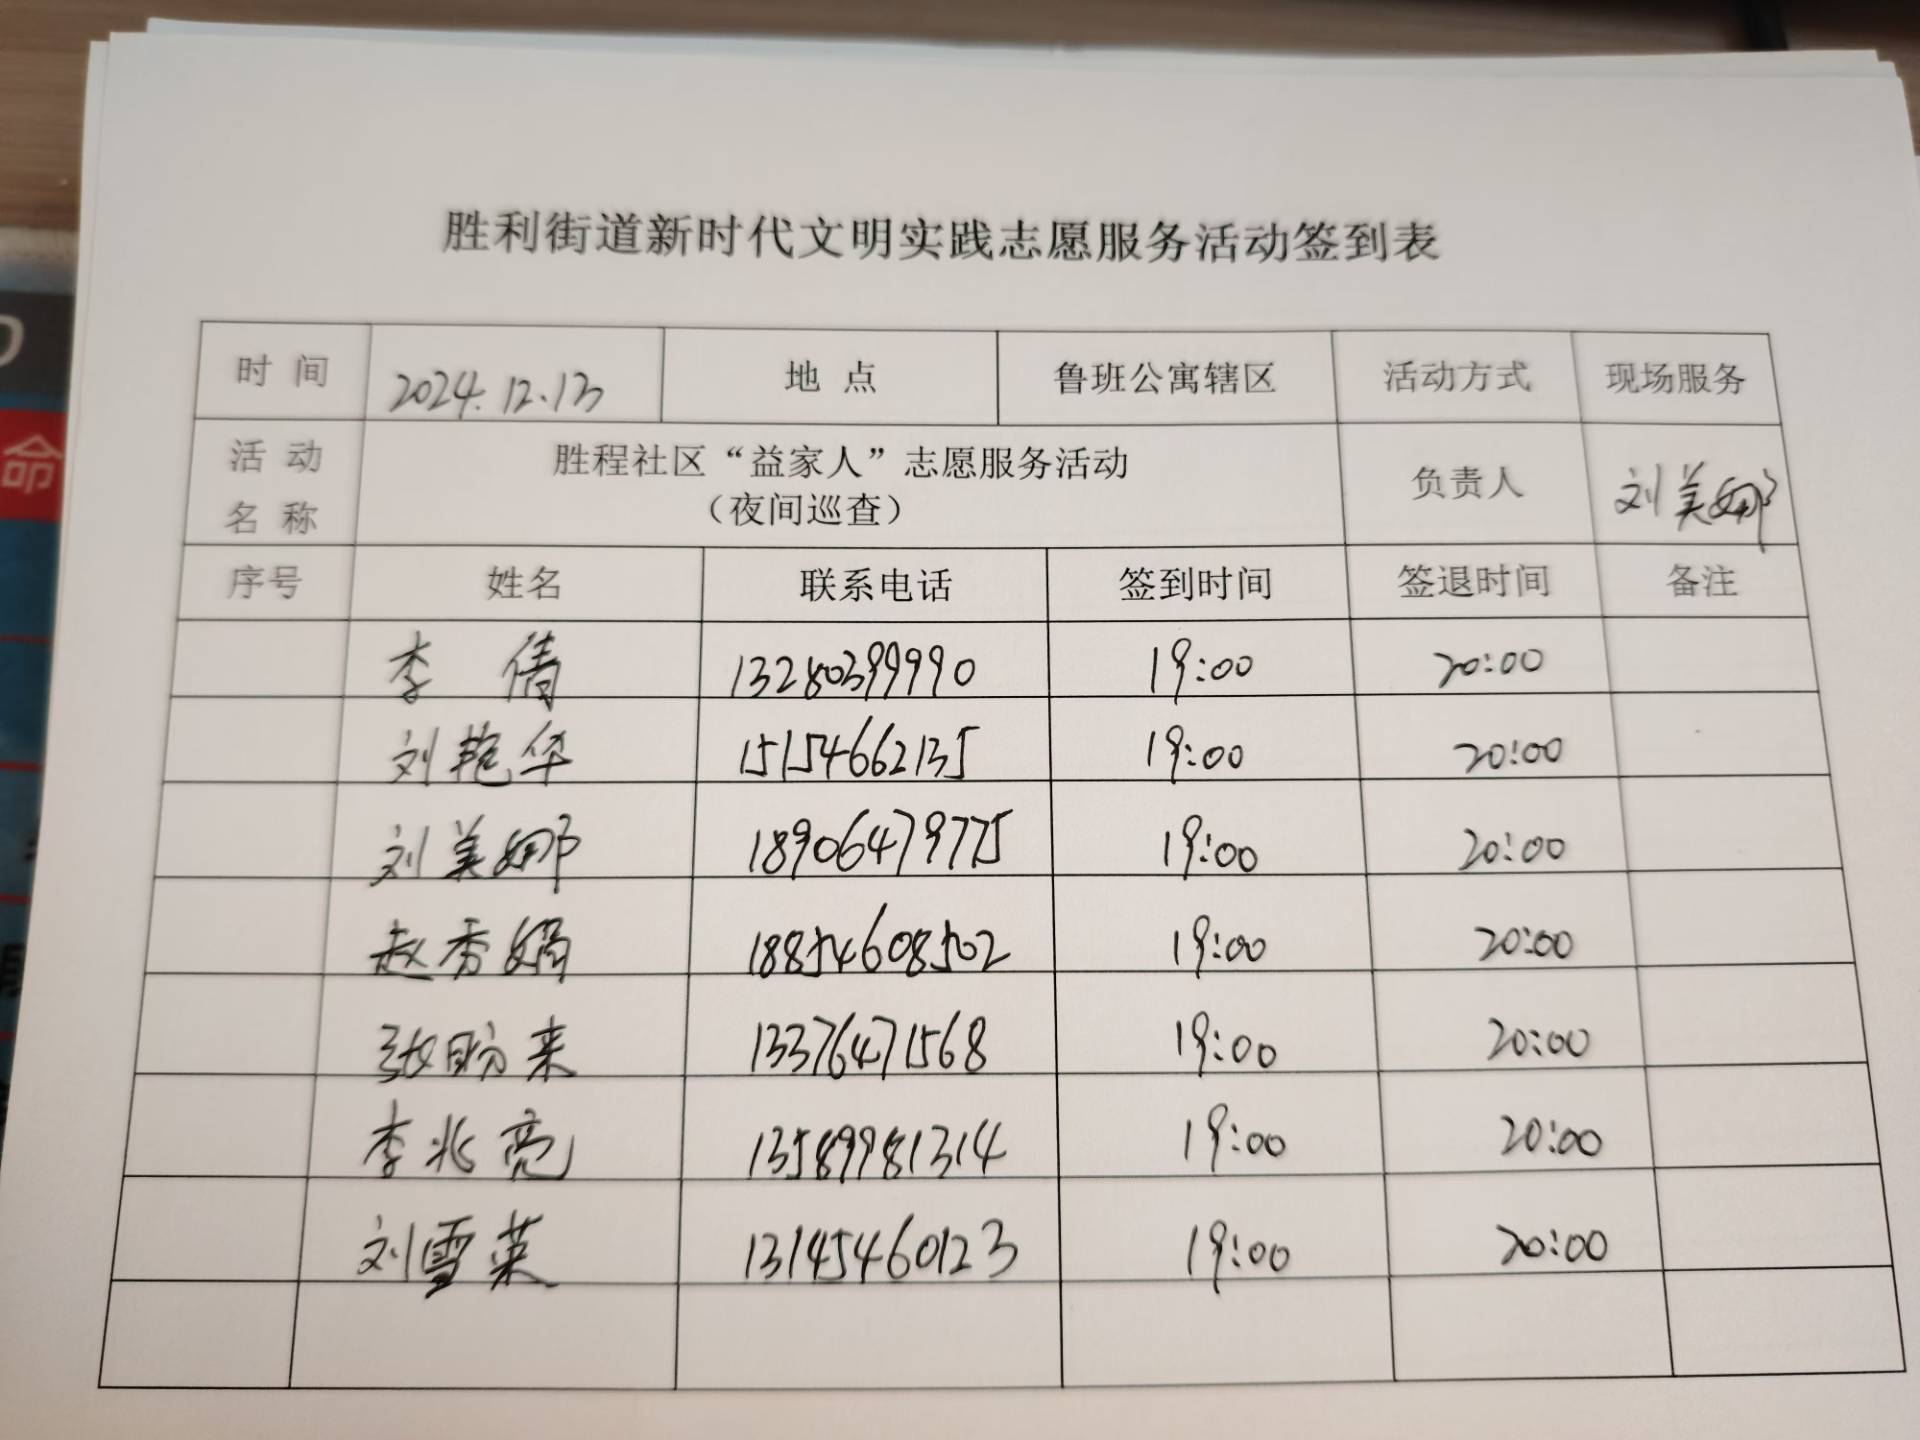 胜利街道新时代文明实践志愿服务活动签到表
时 间 2024.12.13 地 点 鲁班公寓辖区 活动方式 现场服务
活 动 名 称 胜程社区“益家人”志愿服务活动 负责人 刘美娜
（夜间巡查）
序号 姓名 联系电话 签到时间 签退时间 备注
李倩 13280399990 19:00 20:00
刘艳华 15154662135 19:00 20:00
刘美娜 18906479775 19:00 20:00
赵秀娟 18854608502 19:00 20:00
张盼来 13376471568 19:00 20:00
李兆亮 13589981314 19:00 20:00
刘雪莱 13145460123 19:00 20:00
命